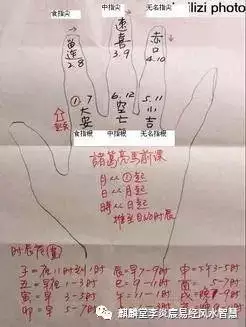 ilizi photo
食指尖 中指尖 无名指尖
留连 2.8
速喜 3.9
赤口 4.10
①.7 大安
6.12 空亡
5.11 小吉
食指根 中指根 无名指根
諸葛亮馬前课
月从①起
日从月起
時从日起
推至目的时辰
时辰表
子=夜11时到1时
丑=早夜1-3时
寅=早3-5时
卯=早5-7时
辰=早7-9时
巳=9-11时
午=11-1时
申=下午3-5时
酉=5-7时
麒麟堂李炎宸易经风水智慧